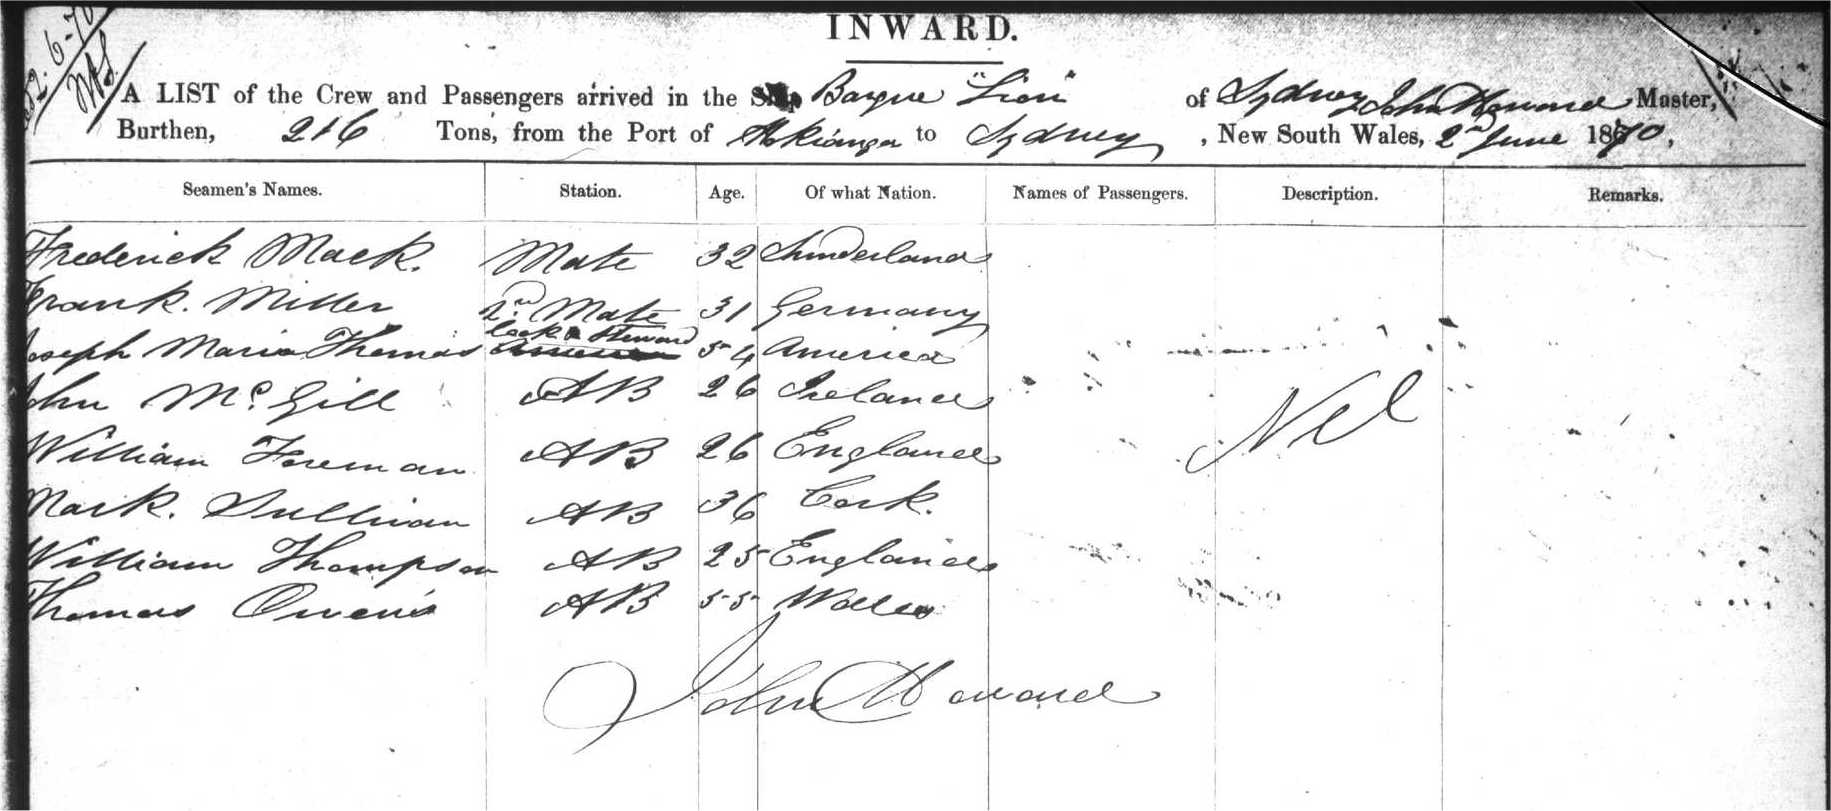 INWARD.
A LIST of the Crew and Passengers arrived in the Ship Barque "Lion" of Sydney, John Howard Master,
Burthen, 216 Tons, from the Port of Hokianga to Sydney, New South Wales, 2nd June 1870,
Seamen's Names. Station. Age. Of what Nation. Names of Passengers. Description. Remarks.
Frederick Mack. Mate 32 Sunderland
Frank. Miller 2nd Mate 31 Germany
Cook & Steward
Joseph Maria Thomas 54 America
John McGill AB 26 Ireland
Nil
William Foreman AB 26 England
Mark. Sullivan AB 36 Cork.
William Thompson AB 25 England
Thomas Owens AB 55 Wales
John Howard